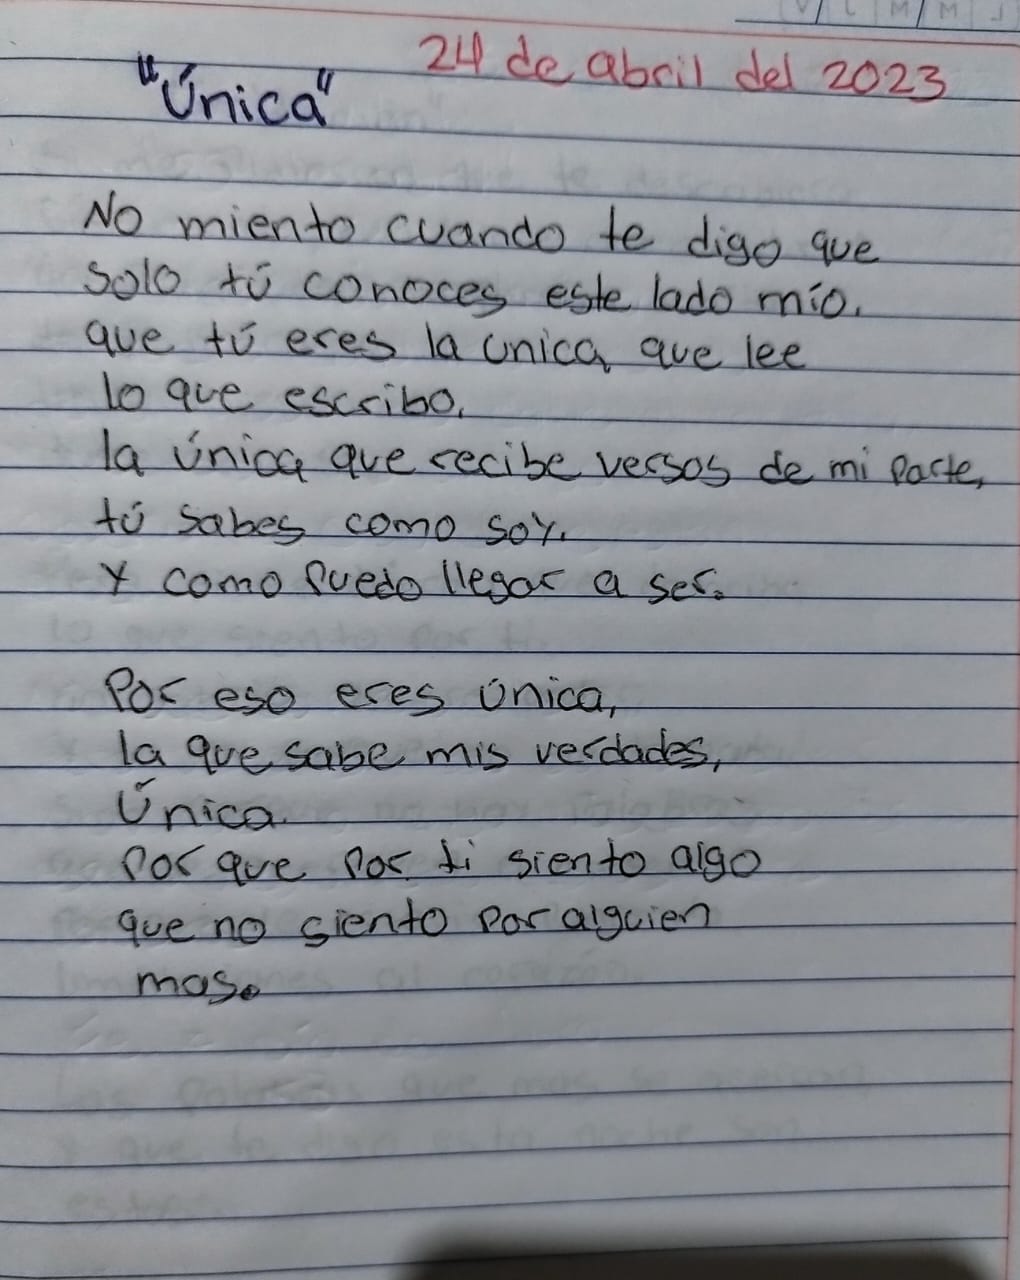 V L M M J
24 de abril del 2023
"Única"
No miento cuando te digo que
solo tú conoces este lado mío.
que tú eres la unica que lee
lo que escribo.
la única que recibe versos de mi parte,
tú sabes como soy.
Y como puedo llegar a ser.
Por eso eres única,
la que sabe mis verdades,
Única.
Por que por ti siento algo
que no siento por alguien
mas.